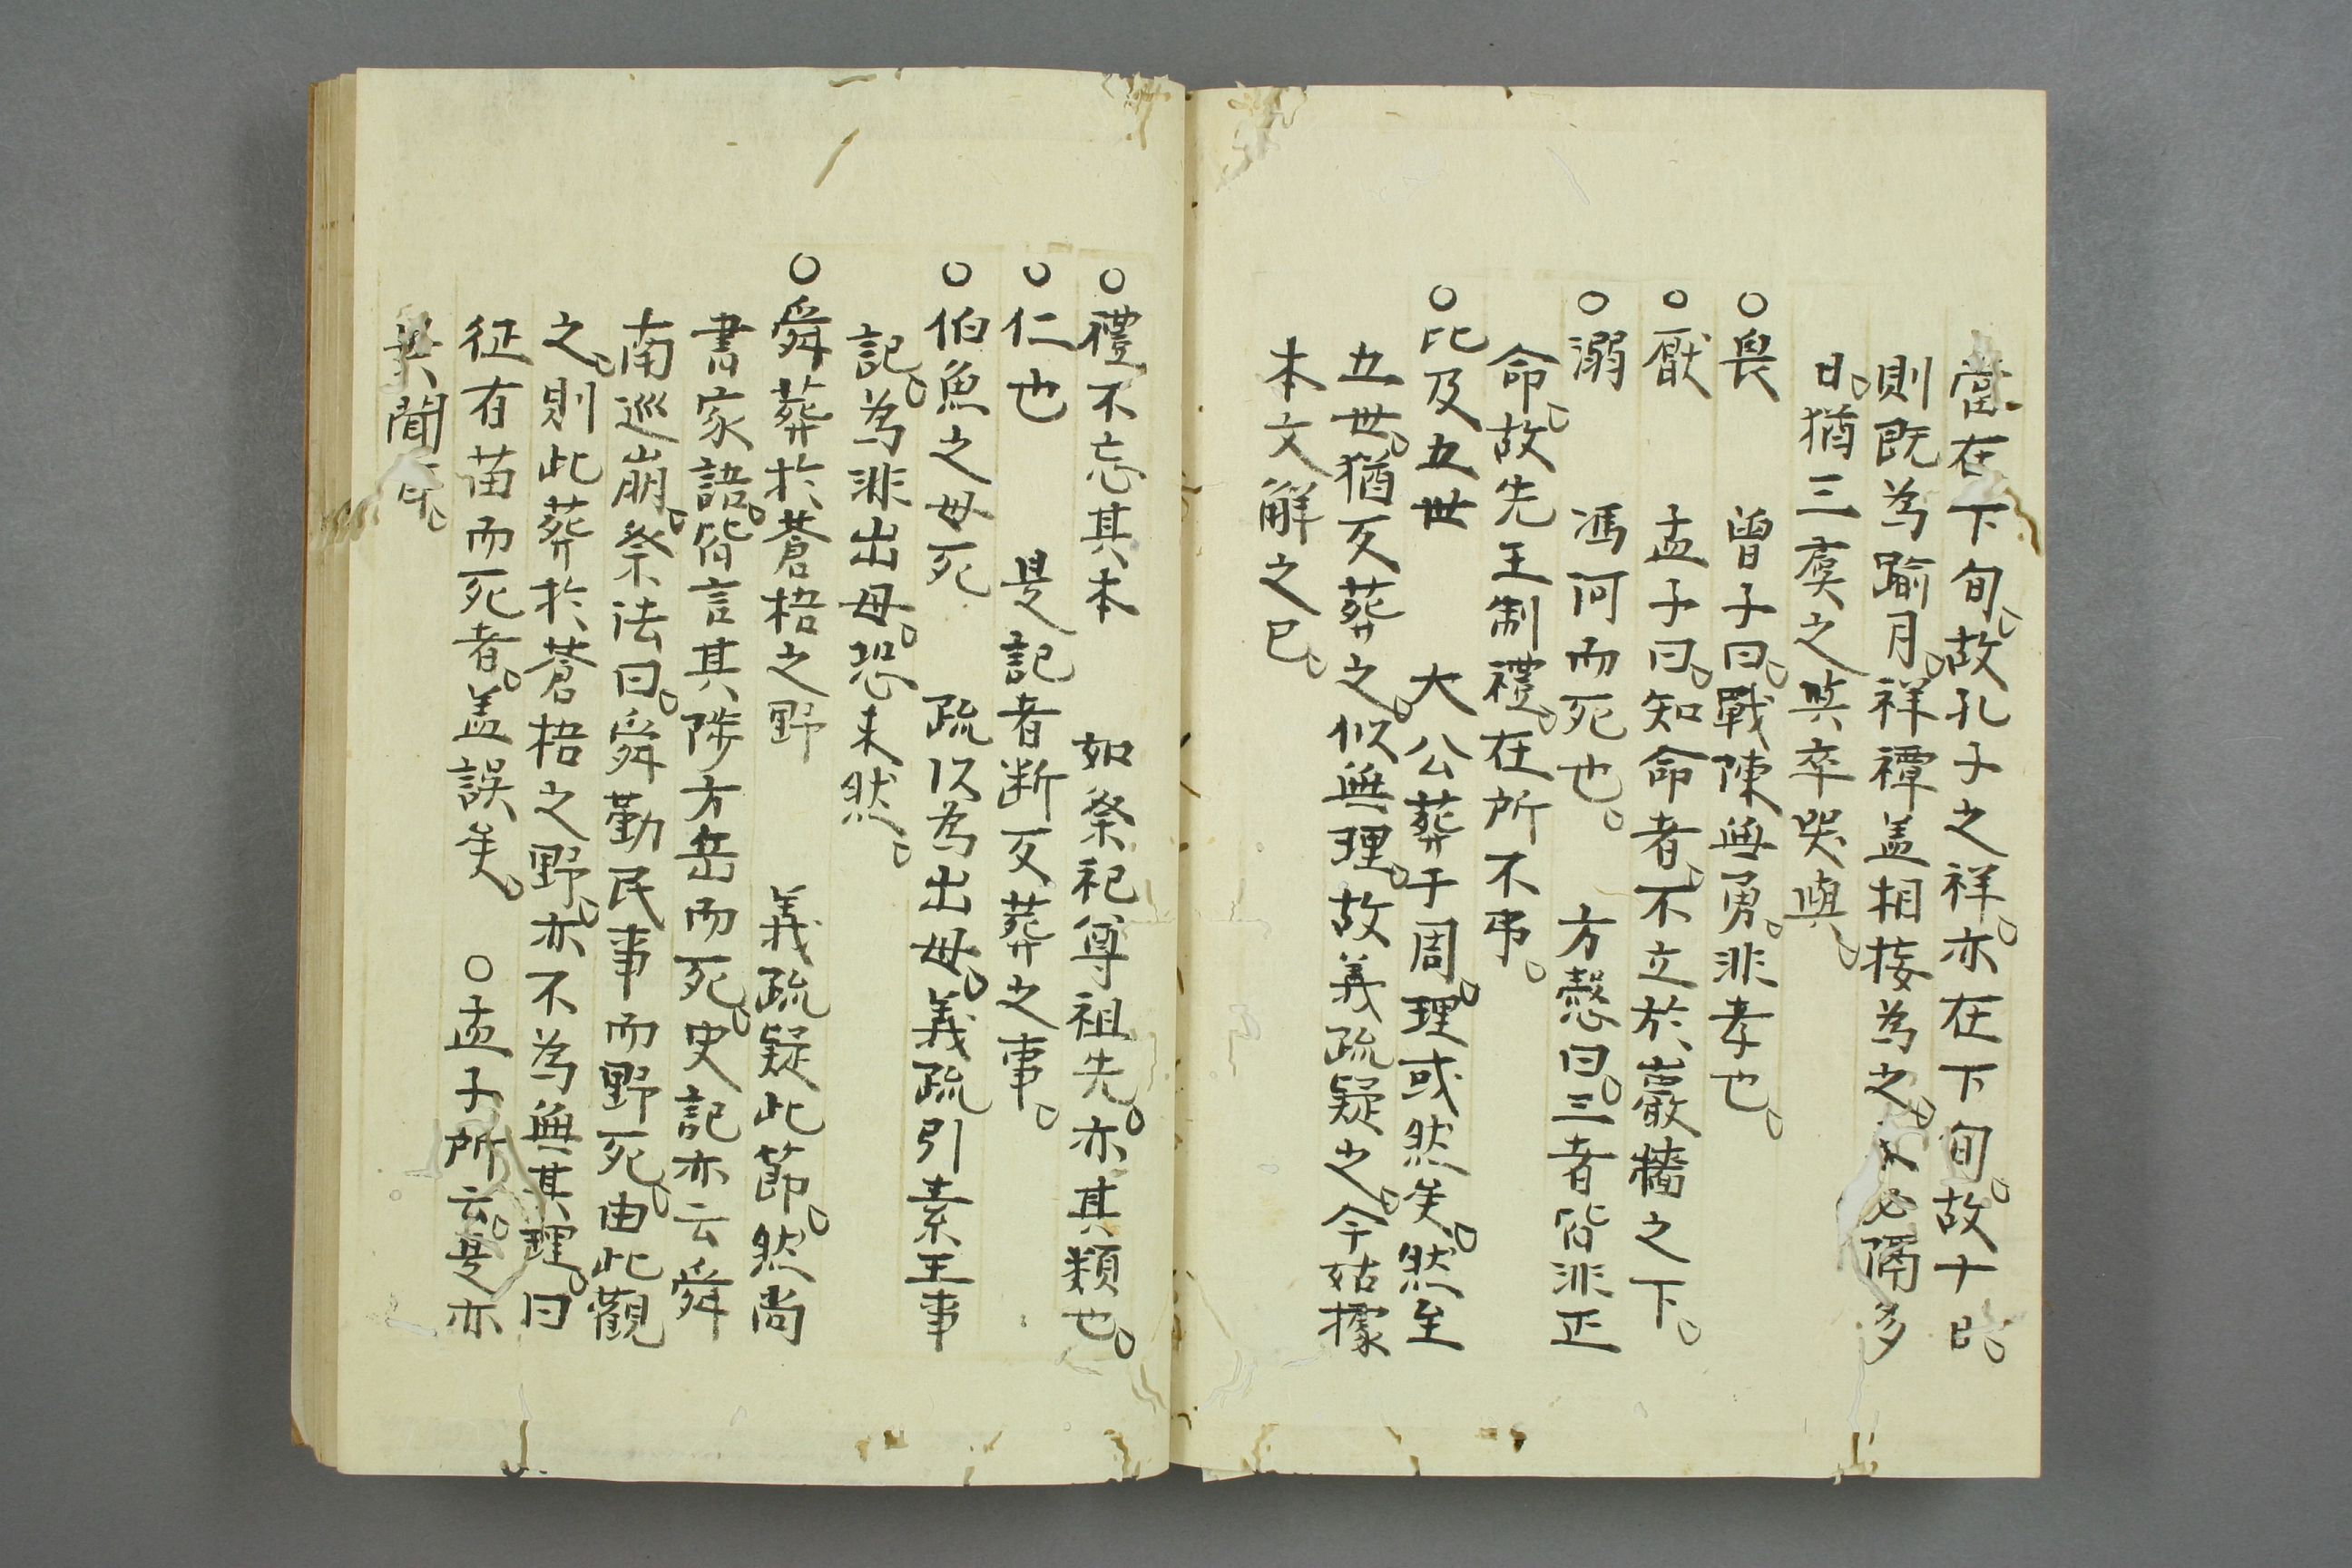 當在下旬。故孔子之祥。亦在下旬。故十日。
則既為踰月。祥禫盖相接為之。必隔多
日。猶三虞之與卒哭與。
○畏　曾子曰。戰陳無勇。非孝也。
○厭　孟子曰。知命者。不立於巖牆之下。
○溺　馮河而死也。　方慤曰。三者皆非正
命。故先王制禮。在所不弔。
○比及五世　大公葬于周。理或然矣。然至
五世。猶反葬之。似無理。故義疏疑之。今姑據
本文解之已。
○禮不忘其本　如祭祀尊祖先。亦其類也。
○仁也　是記者断反葬之事。
○伯魚之母死　疏以為出母。義疏引素王事
記。為非出母。恐未然。
○舜葬於蒼梧之野　義疏疑此節。然尚
書家語。皆言其陟方岳而死。史記亦云舜
南巡崩。祭法曰。舜勤民事而野死。由此觀
之。則此葬於蒼梧之野。亦不為無其理。曰
征有苗而死者。盖誤矣。　○孟子所云。是亦
異聞耳。